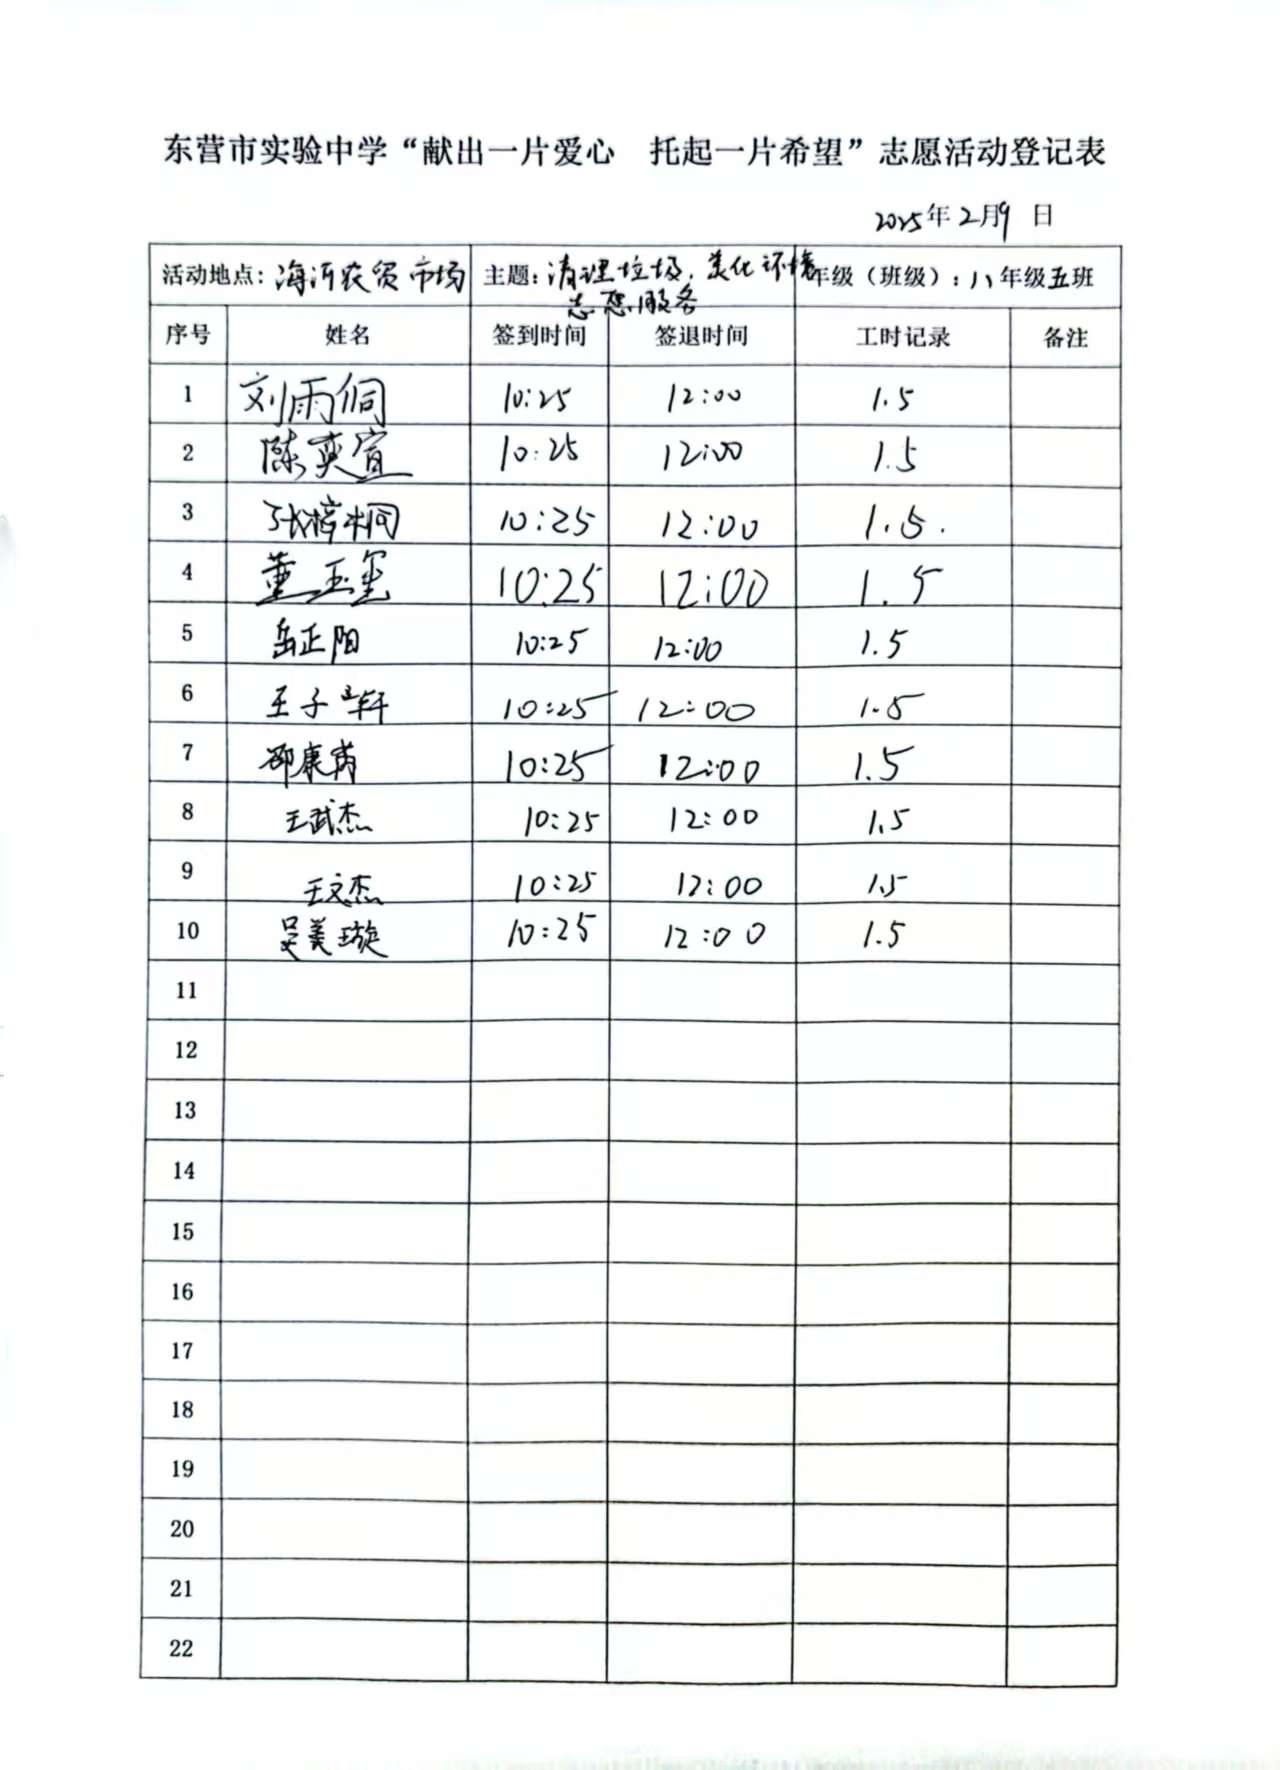 东营市实验中学“献出一片爱心 托起一片希望”志愿活动登记表
2025年2月9日
活动地点：海河农贸市场 主题：清理垃圾，美化环境 年级（班级）：八年级五班
志愿服务
序号 姓名 签到时间 签退时间 工时记录 备注
1 刘雨侗 10:25 12:00 1.5
2 陈奕宣 10:25 12:00 1.5
3 张梓桐 10:25 12:00 1.5.
4 董玉玺 10:25 12:00 1.5
5 岳正阳 10:25 12:00 1.5
6 王子轩 10:25 12:00 1.5
7 邵康 10:25 12:00 1.5
8 王武杰 10:25 12:00 1.5
9 王文杰 10:25 12:00 1.5
10 吴美璇 10:25 12:00 1.5
11
12
13
14
15
16
17
18
19
20
21
22